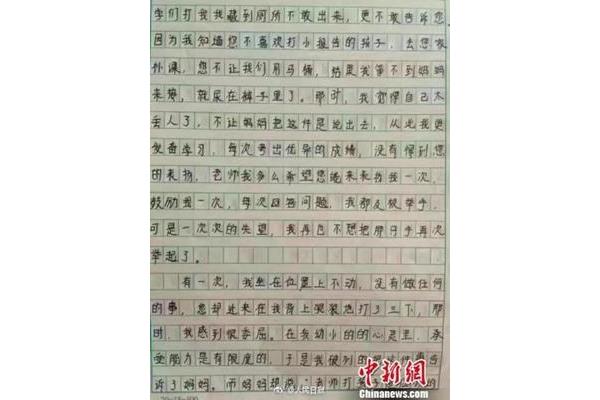 学们打我我藏到厕所不敢出来，更不敢告诉您
因为我知道您不喜欢打小报告的孩子，去您家
补课，您不让我们用马桶，结果我等不到妈妈
来接，就尿在裤子里了。那时，我觉得自己太
丢人了，不让妈妈把这件是说出去，从此我更
发奋学习，每次考出优异的成绩，没有得到您
的表扬，老师我多么希望您能来表扬我一次，
鼓励我一次，每次回答问题，我都及极举手，
可是一次次的失望，我再也不想把那只手再次
举起了。
有一次，我坐在位置上不动，没有做任何
的事，您却过来在我背上狠狠地打了三下，那
时，我感到很委屈。在我幼小的的心灵里，承
受能力是有限度的，于是我
诉了妈妈。而妈妈却说：老师打
@人民日报
中新网
Chinanews.com
20×15=300